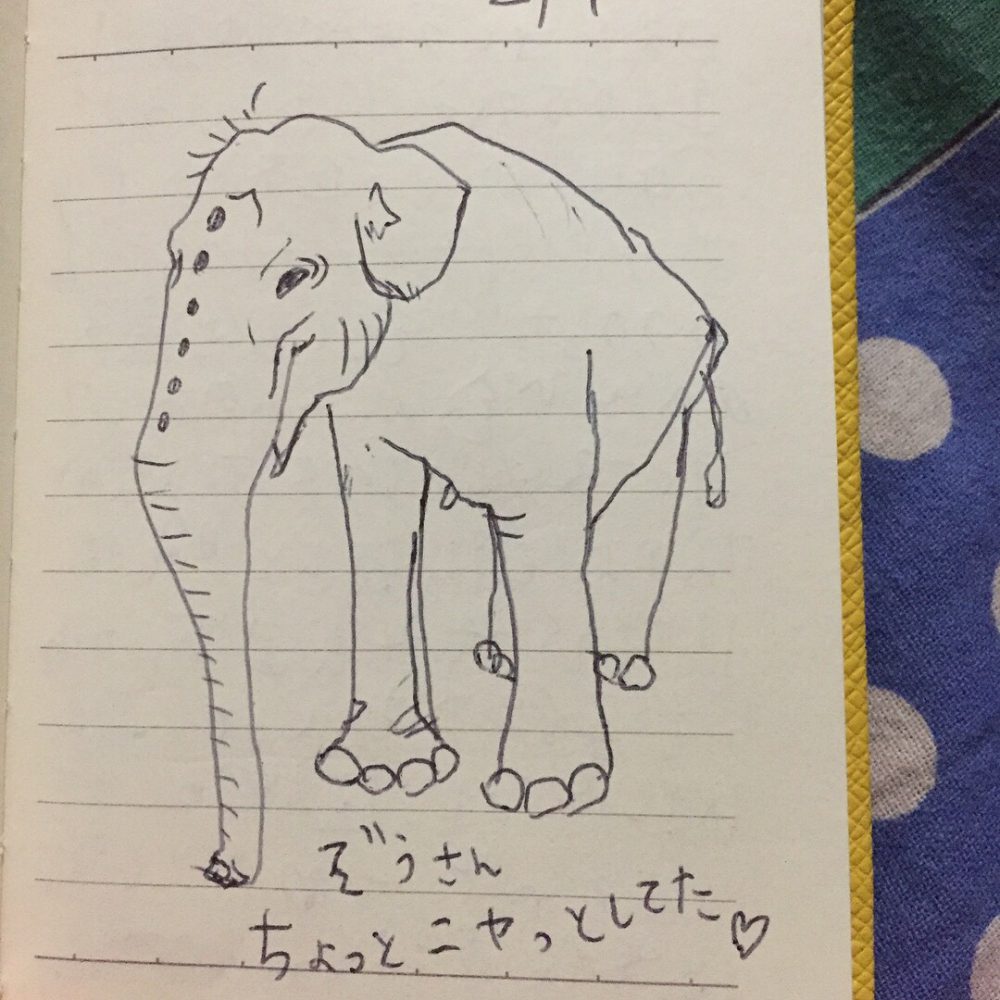 ぞうさん
ちょっとニヤっとしてた♡